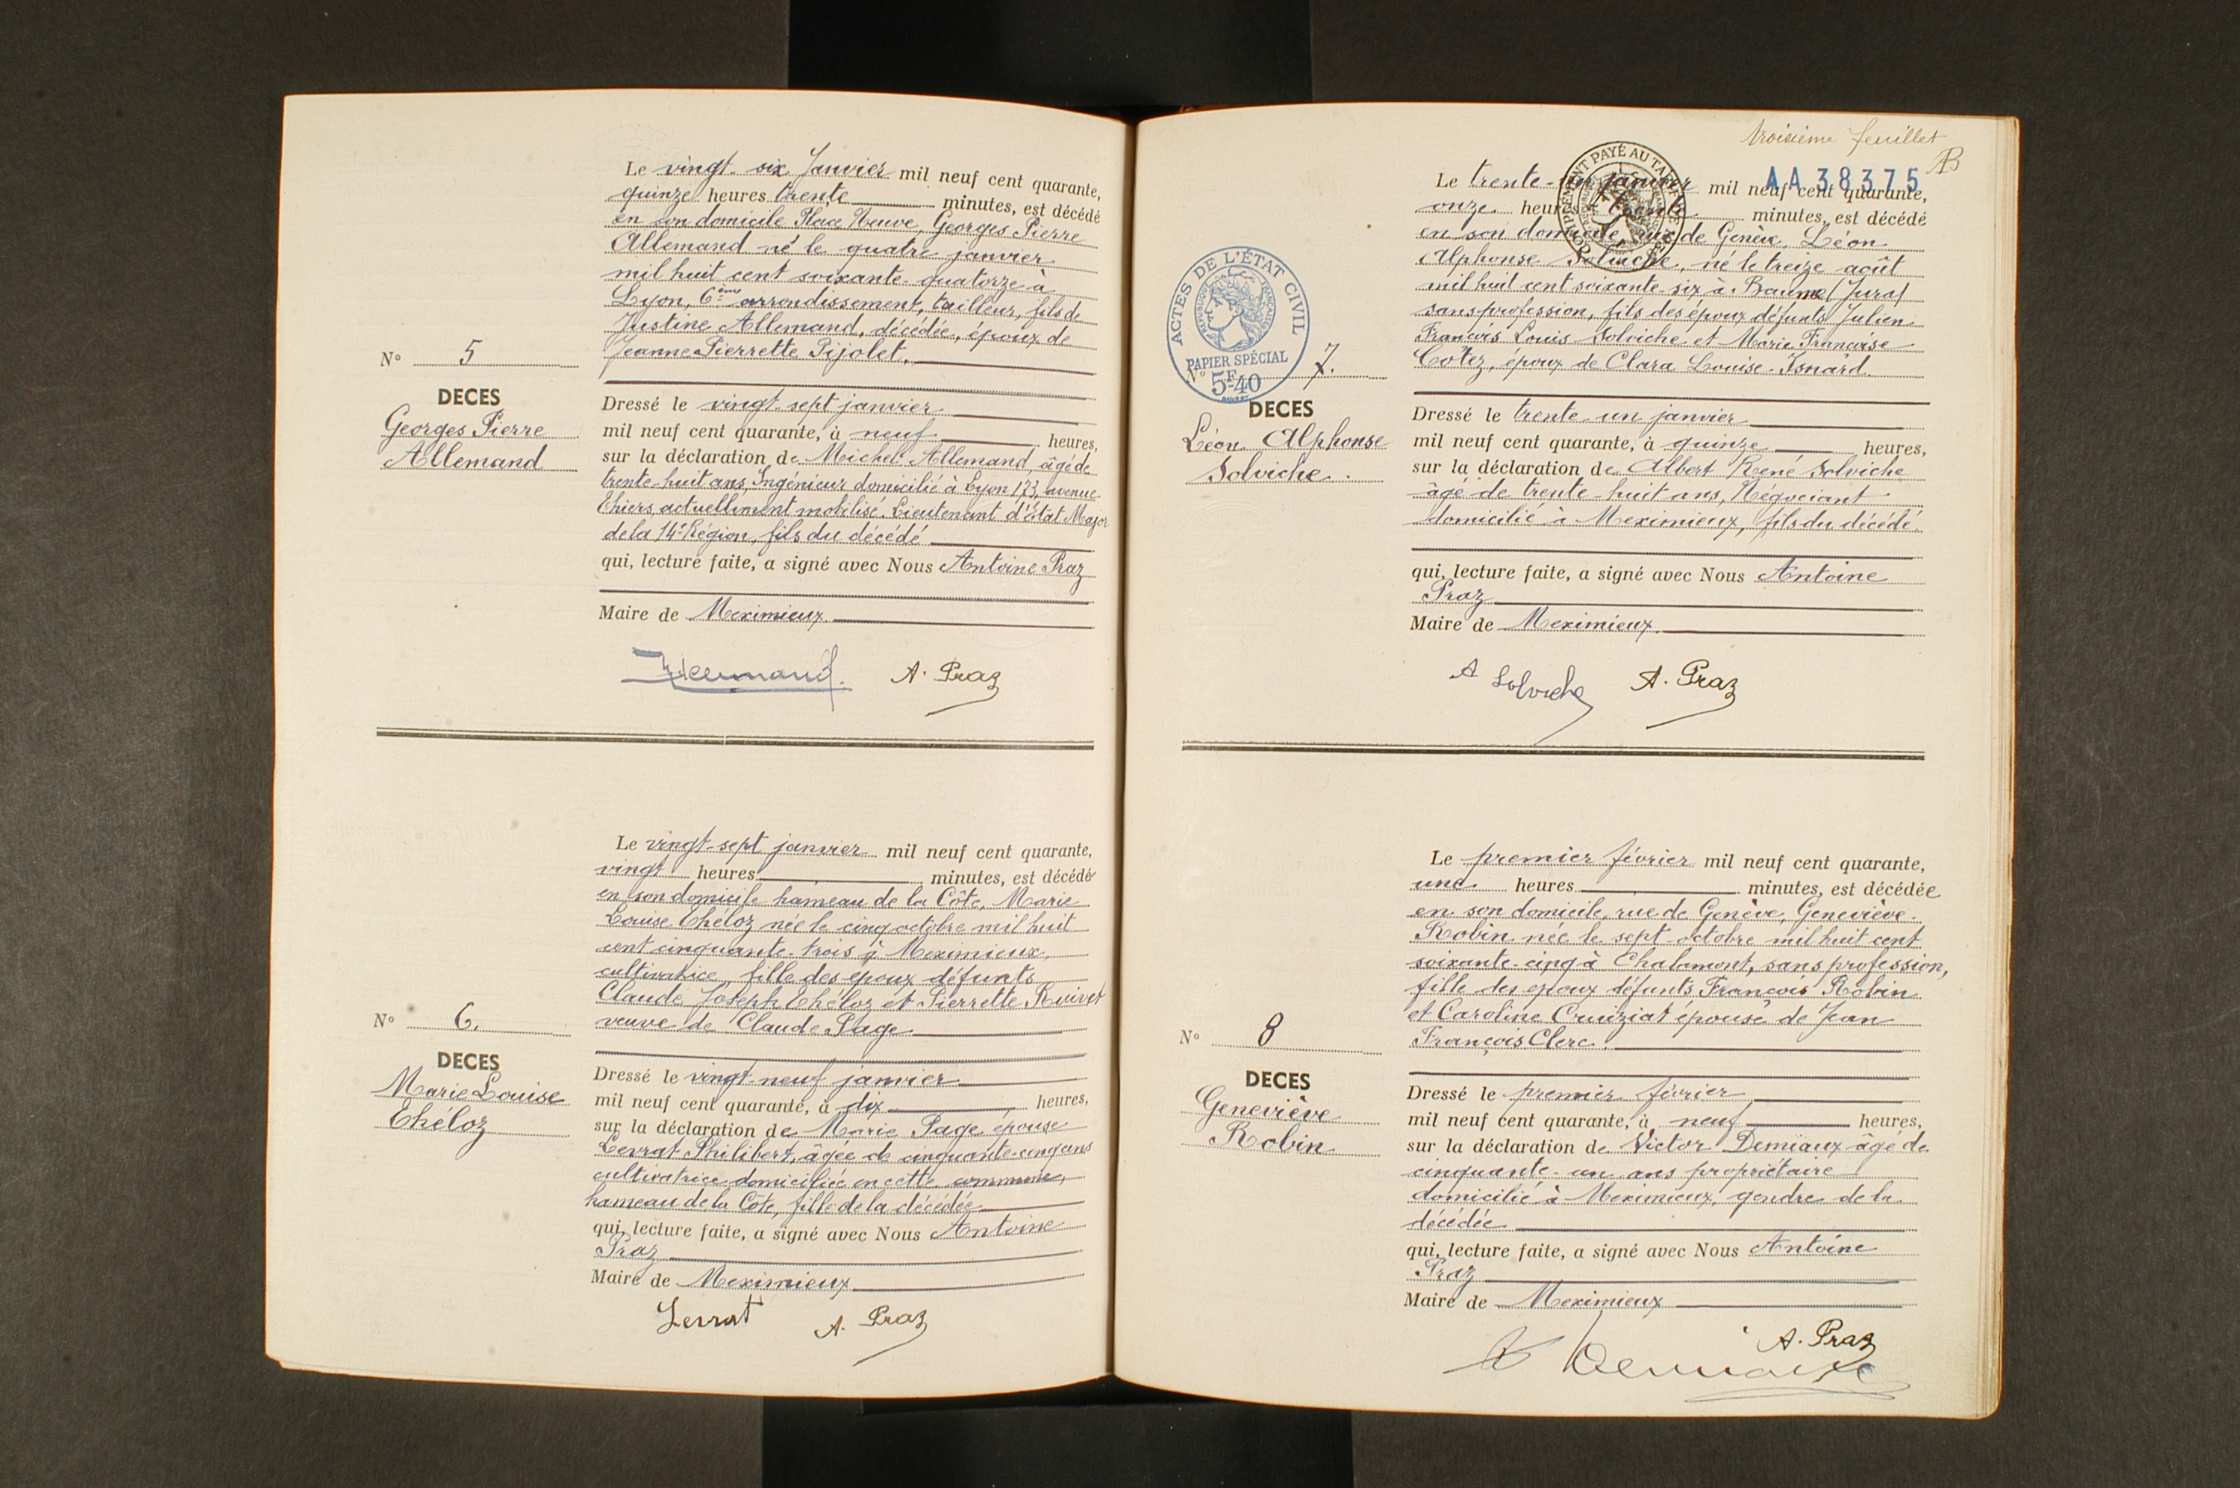 Le vingt-six Janvier mil neuf cent quarante,
quinze heures trente minutes, est décédé
en son domicile Place Neuve, Georges Pierre
Allemand né le quatre janvier
mil huit cent soixante-quatorze à
Lyon, 6ème arrondissement, tailleur, fils de
Justine Allemand, décédée, époux de
Jeanne Pierrette Pijolet.
N° 5
DECES
Georges Pierre
Allemand
Dressé le vingt-sept janvier
mil neuf cent quarante, à neuf heures,
sur la déclaration de Michel Allemand, âgé de
trente-huit ans, Ingénieur domicilié à Lyon 173, avenue
Thiers, actuellement mobilisé. Lieutenant d'état Major
de la 14e Région, fils du décédé
qui, lecture faite, a signé avec Nous Antoine Praz
Maire de Meximieux.
Allemand. A. Praz
Le vingt-sept janvier mil neuf cent quarante,
vingt heures minutes, est décédé
en son domicile hameau de la Côte, Marie
Louise Théloz née le cinq octobre mil huit
cent cinquante-trois à Meximieux,
cultivatrice, fille des époux défunts
Claude Joseph Théloz et Pierrette Ruivet
veuve de Claude Page.
N° 6.
DECES
Marie Louise
Théloz
Dressé le vingt-neuf janvier
mil neuf cent quarante, à dix heures,
sur la déclaration de Marie Page épouse
Levrat Philibert, âgée de cinquante-cinq ans
cultivatrice domiciliée en cette commune,
hameau de la Côte, fille de la décédée
qui, lecture faite, a signé avec Nous Antoine
Praz
Maire de Meximieux
Levrat A. Praz
troisième feuillet
AA 38375
Le trente-un janvier mil neuf cent quarante,
onze heures trente minutes, est décédé
en son domicile rue de Genève, Léon
Alphonse Solviche, né le treize août
mil huit cent soixante-six à Baume (Jura)
sans profession, fils des époux défunts Julien
François Louis Solviche et Marie Françoise
Cotez, époux de Clara Louise Isnard.
ACTES DE L'ÉTAT CIVIL
PAPIER SPÉCIAL
5F40
N° 7.
DECES
Léon Alphonse
Solviche.
Dressé le trente-un janvier
mil neuf cent quarante, à quinze heures,
sur la déclaration de Albert René Solviche
âgé de trente-huit ans, Négociant
domicilié à Meximieux, fils du décédé
qui, lecture faite, a signé avec Nous Antoine
Praz
Maire de Meximieux.
A Solviche A. Praz
Le premier février mil neuf cent quarante,
une heures minutes, est décédée
en son domicile, rue de Genève, Geneviève
Robin née le sept octobre mil huit cent
soixante-cinq à Chalamont, sans profession,
fille des époux défunts François Robin
et Caroline Cruiziat épouse de Jean
François Clerc.
N° 8
DECES
Geneviève
Robin
Dressé le premier février
mil neuf cent quarante, à neuf heures,
sur la déclaration de Victor Demiaux âgé de
cinquante-un ans propriétaire
domicilié à Meximieux, gendre de la
décédée
qui, lecture faite, a signé avec Nous Antoine
Praz
Maire de Meximieux
A. Praz
V Demiaux